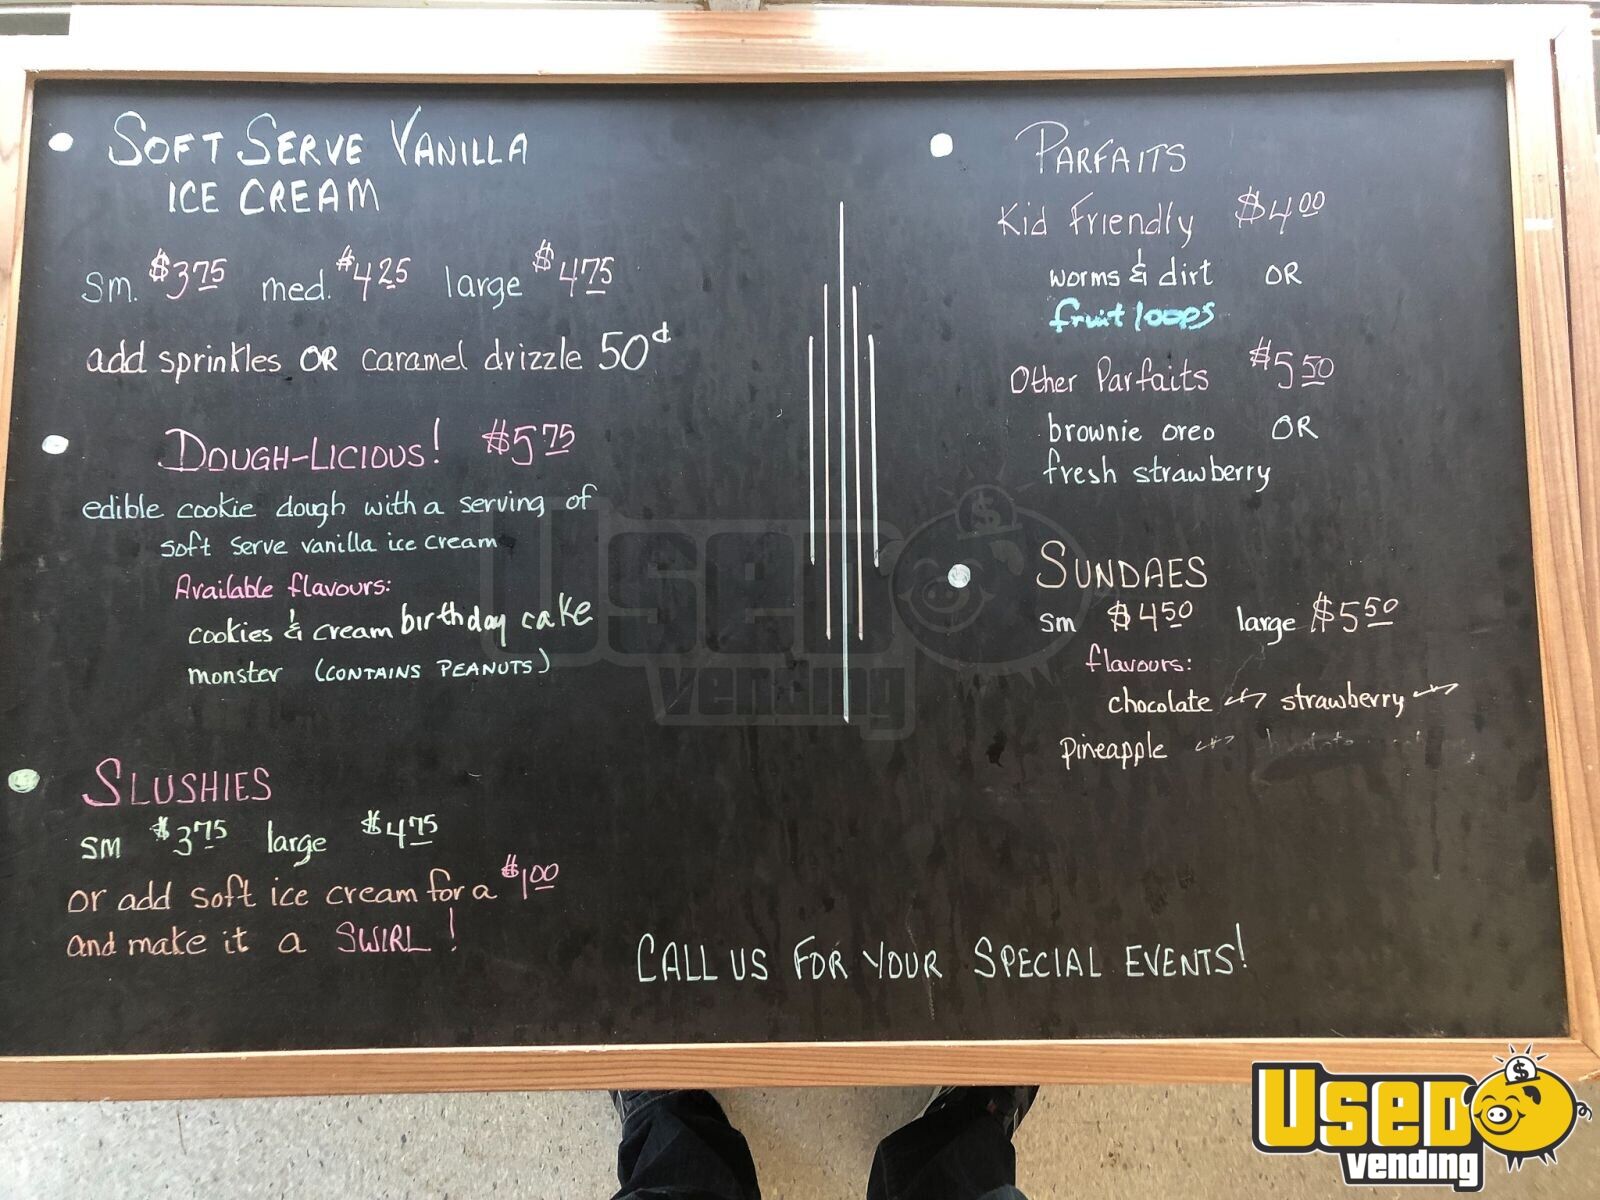 SOFT SERVE VANILLA
ICE CREAM
sm. $3.75 med. $4.25 large $4.75
add sprinkles OR caramel drizzle 50¢
DOUGH-LICIOUS! $5.75
edible cookie dough with a serving of
soft serve vanilla ice cream
Available flavours:
cookies & cream birthday cake
monster (CONTAINS PEANUTS)
SLUSHIES
sm $3.75 large $4.75
or add soft ice cream for a $1.00
and make it a SWIRL!
PARFAITS
Kid Friendly $4.00
worms & dirt OR
fruit loops
Other Parfaits $5.50
brownie oreo OR
fresh strawberry
SUNDAES
sm $4.50 large $5.50
flavours:
chocolate strawberry
pineapple
CALL US FOR YOUR SPECIAL EVENTS!
USED
vending
USED
vending